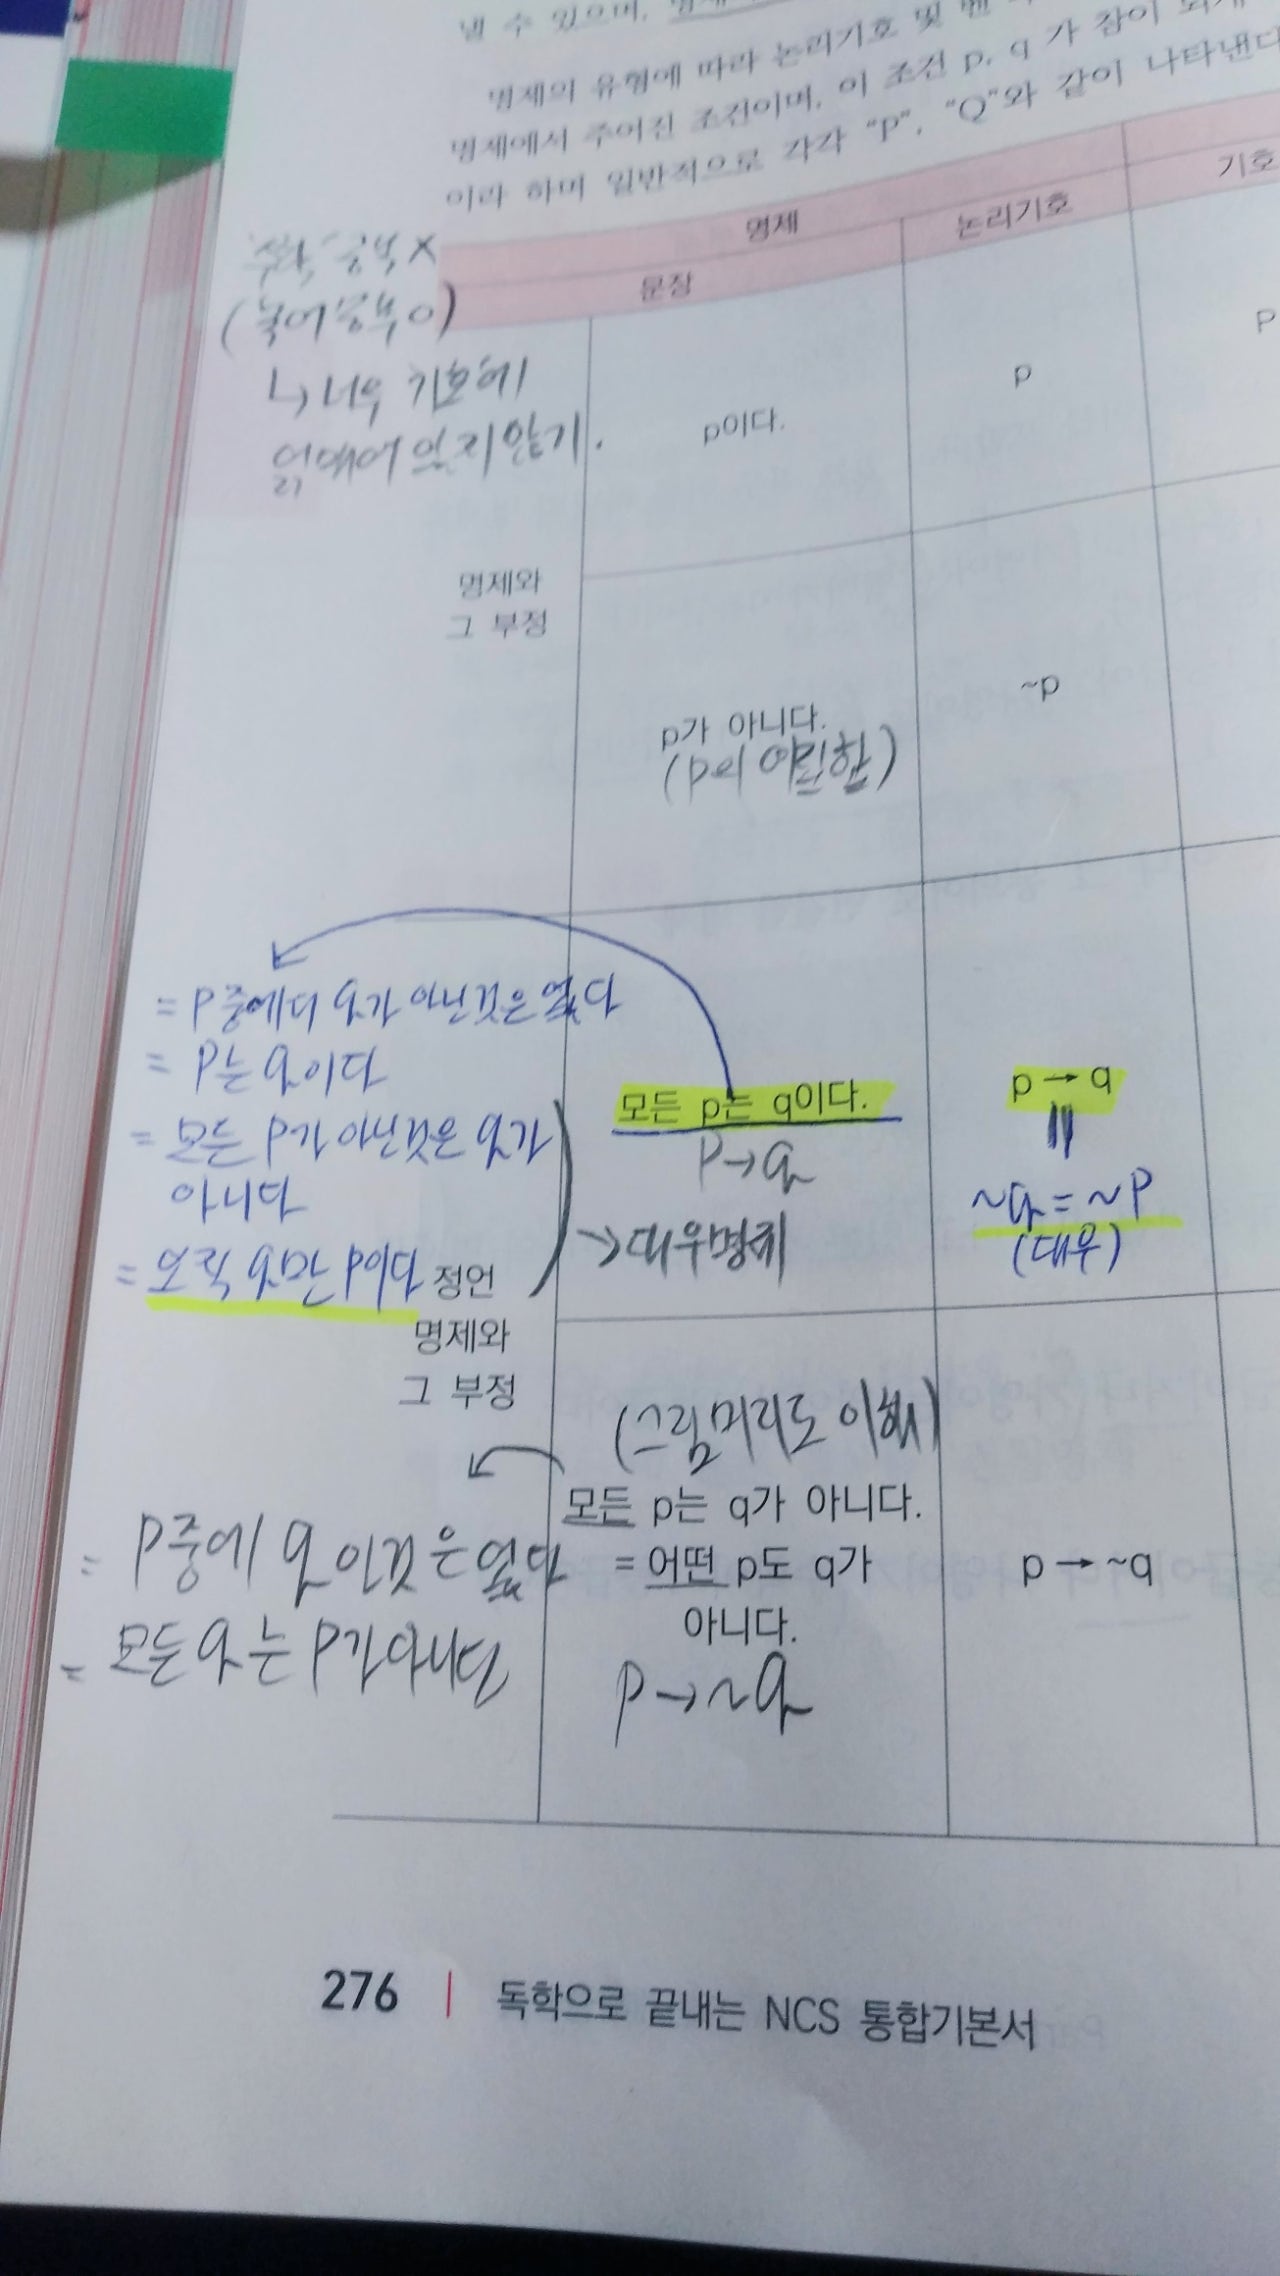 낼 수 있으며,
명제의 유형에 따라 논리기호 및 벤
명제에서 주어진 조건이며, 이 조건 p, q 가 참이 되게
이라 하며 일반적으로 각각 "P", "Q"와 같이 나타낸다
수학 공부 X
(국어공부 O)
↳ 너무 기호에
얽매여 있지않기.
명제
논리기호
기호
문장
명제와
그 부정
p이다.
p
P
p가 아니다.
(p의 여집합)
~p
= P중에더 q가 아닌것은 없다
= P는 q이다
= 모든 P가 아닌것은 q가
아니다
= 오직 q만 P이다
→대우명제
정언
명제와
그 부정
모든 p는 q이다.
P→q
p → q
||
~q = ~P
(대우)
(그림머리도 이해)
모든 p는 q가 아니다.
= 어떤 p도 q가
아니다.
P→~q
p → ~q
= P중에 q인것은 없다
= 모든 q는 P가 아니다
276 | 독학으로 끝내는 NCS 통합기본서